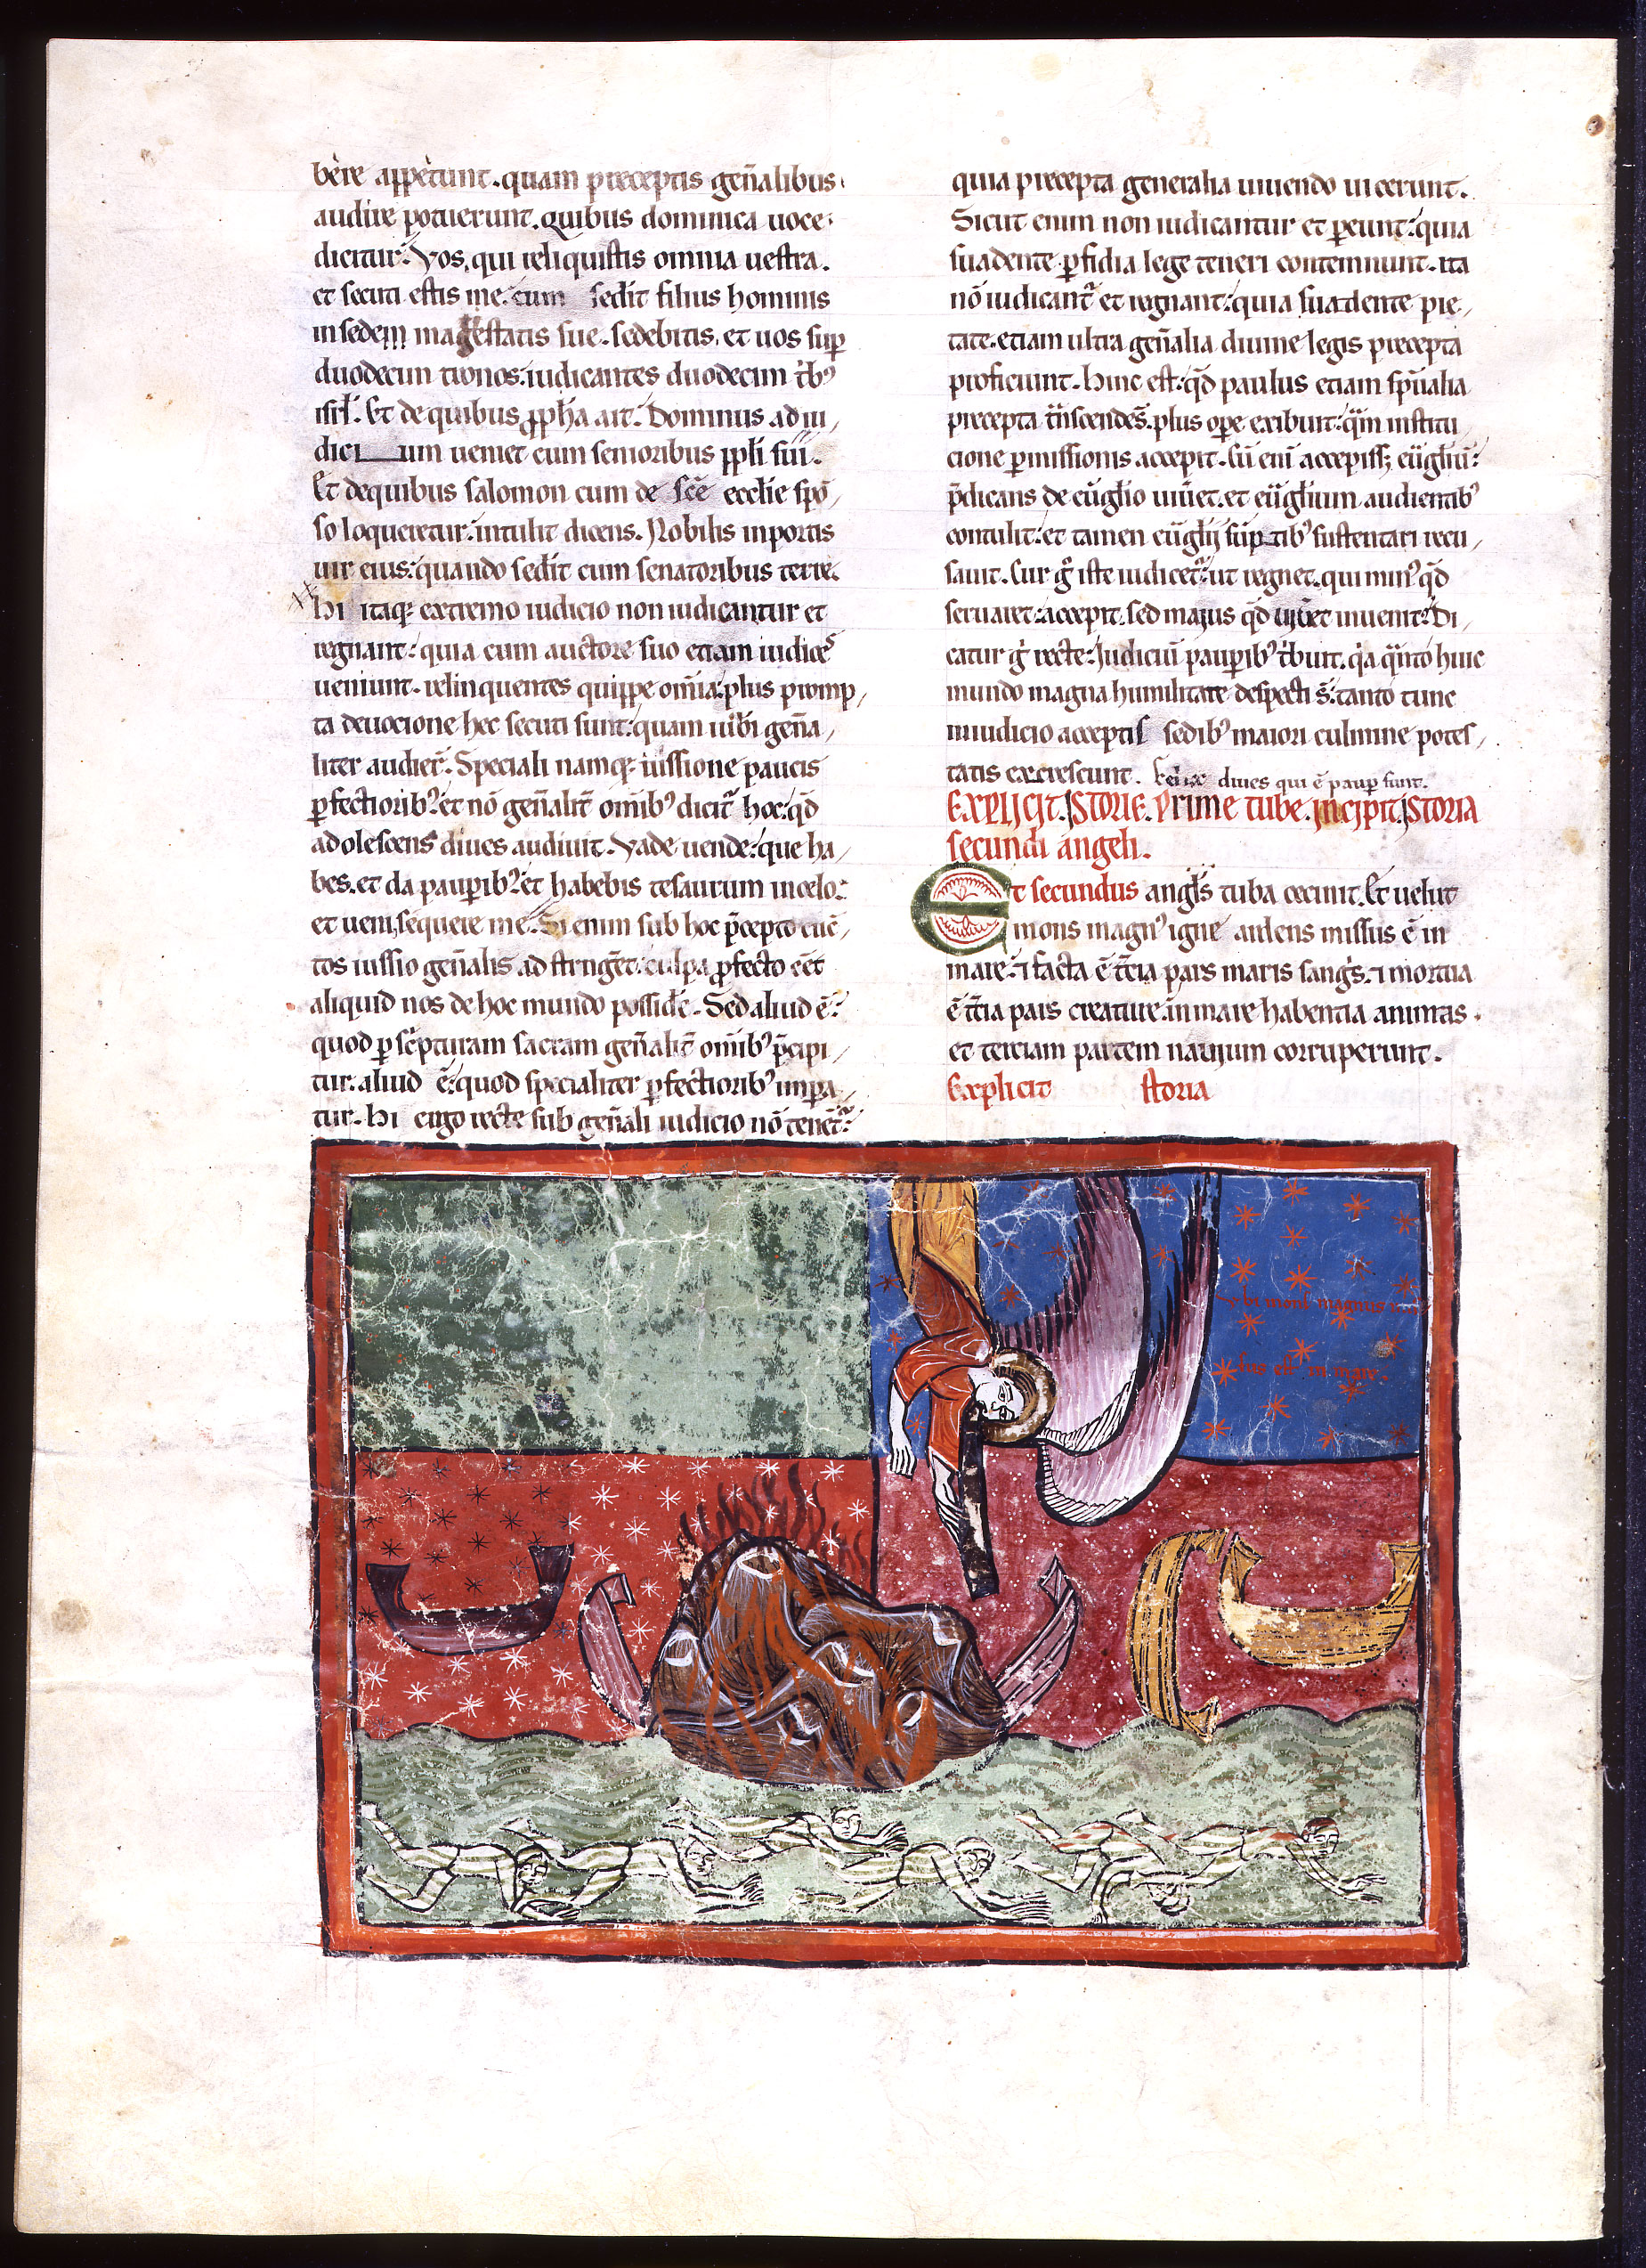 bere appetunt. quam preceptis gen̄alibus
audire potuerunt. Quibus dominica uoce
dicitur. Vos, qui reliquistis omnia uestra.
et secuti estis me. cum sed̄it filius hominis
in sedem magestatis sue. sedebitis, et uos sup̄
duodecim tronos. iudicantes duodecim t̄bꝰ
isrł. Et de quibus ꝓpħa ait. Dominus ad iu
dici um ueniet cum senioribus ppłi sui.
Et de quibus salomon cum de sc̄e ecclīe spō
so loqueretur. intulit dicens. Nobilis in portis
uir eius. quando sed̄it cum senatoribus terre.
Hi itaqꝫ extremo iudicio non iudicantur et
regnant. quia cum auctore suo etiam iudices
ueniunt. relinquentes quippe om̄ia. plus promp
ta deuocione hec secuti sunt. quam gen̄a
liter audier̄. Speciali namqꝫ iussione paucis
ꝑfectioribꝰ. et nō gen̄alit̄ om̄ibꝰ dicit᷑ hoc. qd̄
adolescens diues audiuit. Vade uende. que ha
bes. et da pauꝑibꝰ. et habebis tesaurum in celo.
et ueni, sequere me. Si enim sub hoc p̄cepto cūc
tos iussio gen̄alis ad stringēt. culpa ꝓfecto eēt
aliquid nos de hoc mundo possid̄e. Sed aliud ē.
quod ꝑ sc̄pturam sacram gen̄alit̄ om̄ibꝰ p̄cipi
tur. aliud ē. quod specialiter ꝑfectioribꝰ imꝑa
tur. Hi ergo recte sub gen̄ali iudicio nō tenēt᷑.
quia precepta generalia uiuendo uicerunt.
Sicut enim non iudicantur et ꝑeunt. quia
suadente ꝑfidia lege teneri contemnunt. ita
nō iudicant᷑ et regnant. quia suadente pie
tate. etiam ultra gen̄alia diuine legis precepta
proficiunt. Hinc est. qd̄ paulus etiam sp̄ualia
precepta t̄nscendēs. plus oꝑe exibuit. q̄m institu
cione ꝑmissionis accepit. Cū eni accepissꝫ eūgłiū.
p̄dicans de eūglio uiuēt. et eūglium audientibꝰ
contulit. et tamen eūglij sūptibꝰ sustentari recu
sauit. Cur g̊ iste iudicet᷑. ut regnet. qui minꝰ qd̄
seruaret. accepit. sed maius qd̄ uiuet inuenit. Di
catur g̊ recte. Iudiciū pauꝑibꝰ t̄buit. q̇a q̄nto huic
mundo magna humilitate despecti s̄. tanto tunc
in iudicio acceptis sedibꝰ maiori culmine potes
tatis excrescunt. diues qui ē pauꝑ sunt.
Explicit. Istorie. Prime tube. incipit Istoria
secundi angeli.
Et secundus angłs tuba cecinit. Et uelut
mons magnꝰ igne ardens missus ē in
mare. ⁊ facta ē t̄cia pars maris sangs. ⁊ mortua
ē t̄cia pars creature. in mare habentia animas.
et terciam partem nauium corruperunt.
Explicit storia
Vbi mons magnus mis
sus est in mare.